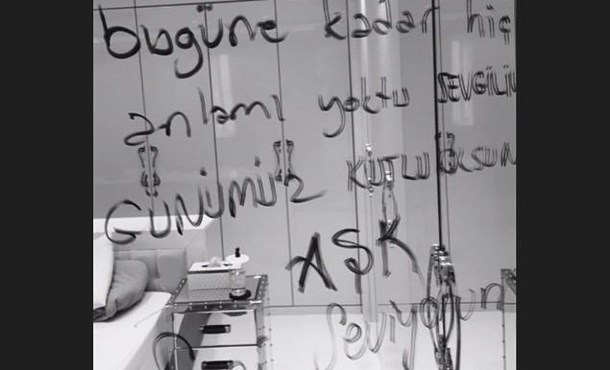 bugüne kadar hiç
anlamı yoktu SEVGİLİM
GÜNÜMÜZ KUTLU OLSUN
AŞK
Seviyorum